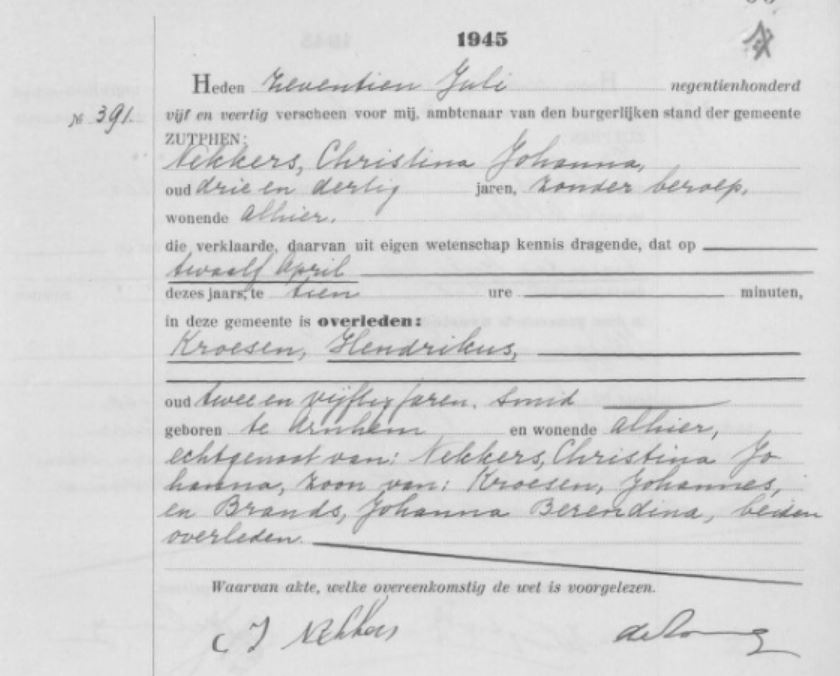 1945
Heden zeventien Juli negentienhonderd
№ 391. vijf en veertig verscheen voor mij, ambtenaar van den burgerlijken stand der gemeente
ZUTPHEN:
Nekkers, Christina Johanna,
oud drie en dertig jaren, zonder beroep,
wonende alhier,
die verklaarde, daarvan uit eigen wetenschap kennis dragende, dat op
twaalf April
dezes jaars, te tien ure minuten,
in deze gemeente is overleden:
Kroesen, Hendrikus,
oud twee en vijftig jaren, smid
geboren te Arnhem en wonende alhier,
echtgenoot van: Nekkers, Christina Jo
hanna, zoon van: Kroesen, Johannes,
en Brands, Johanna Berendina, beiden
overleden.
Waarvan akte, welke overeenkomstig de wet is voorgelezen.
C J Nekkers